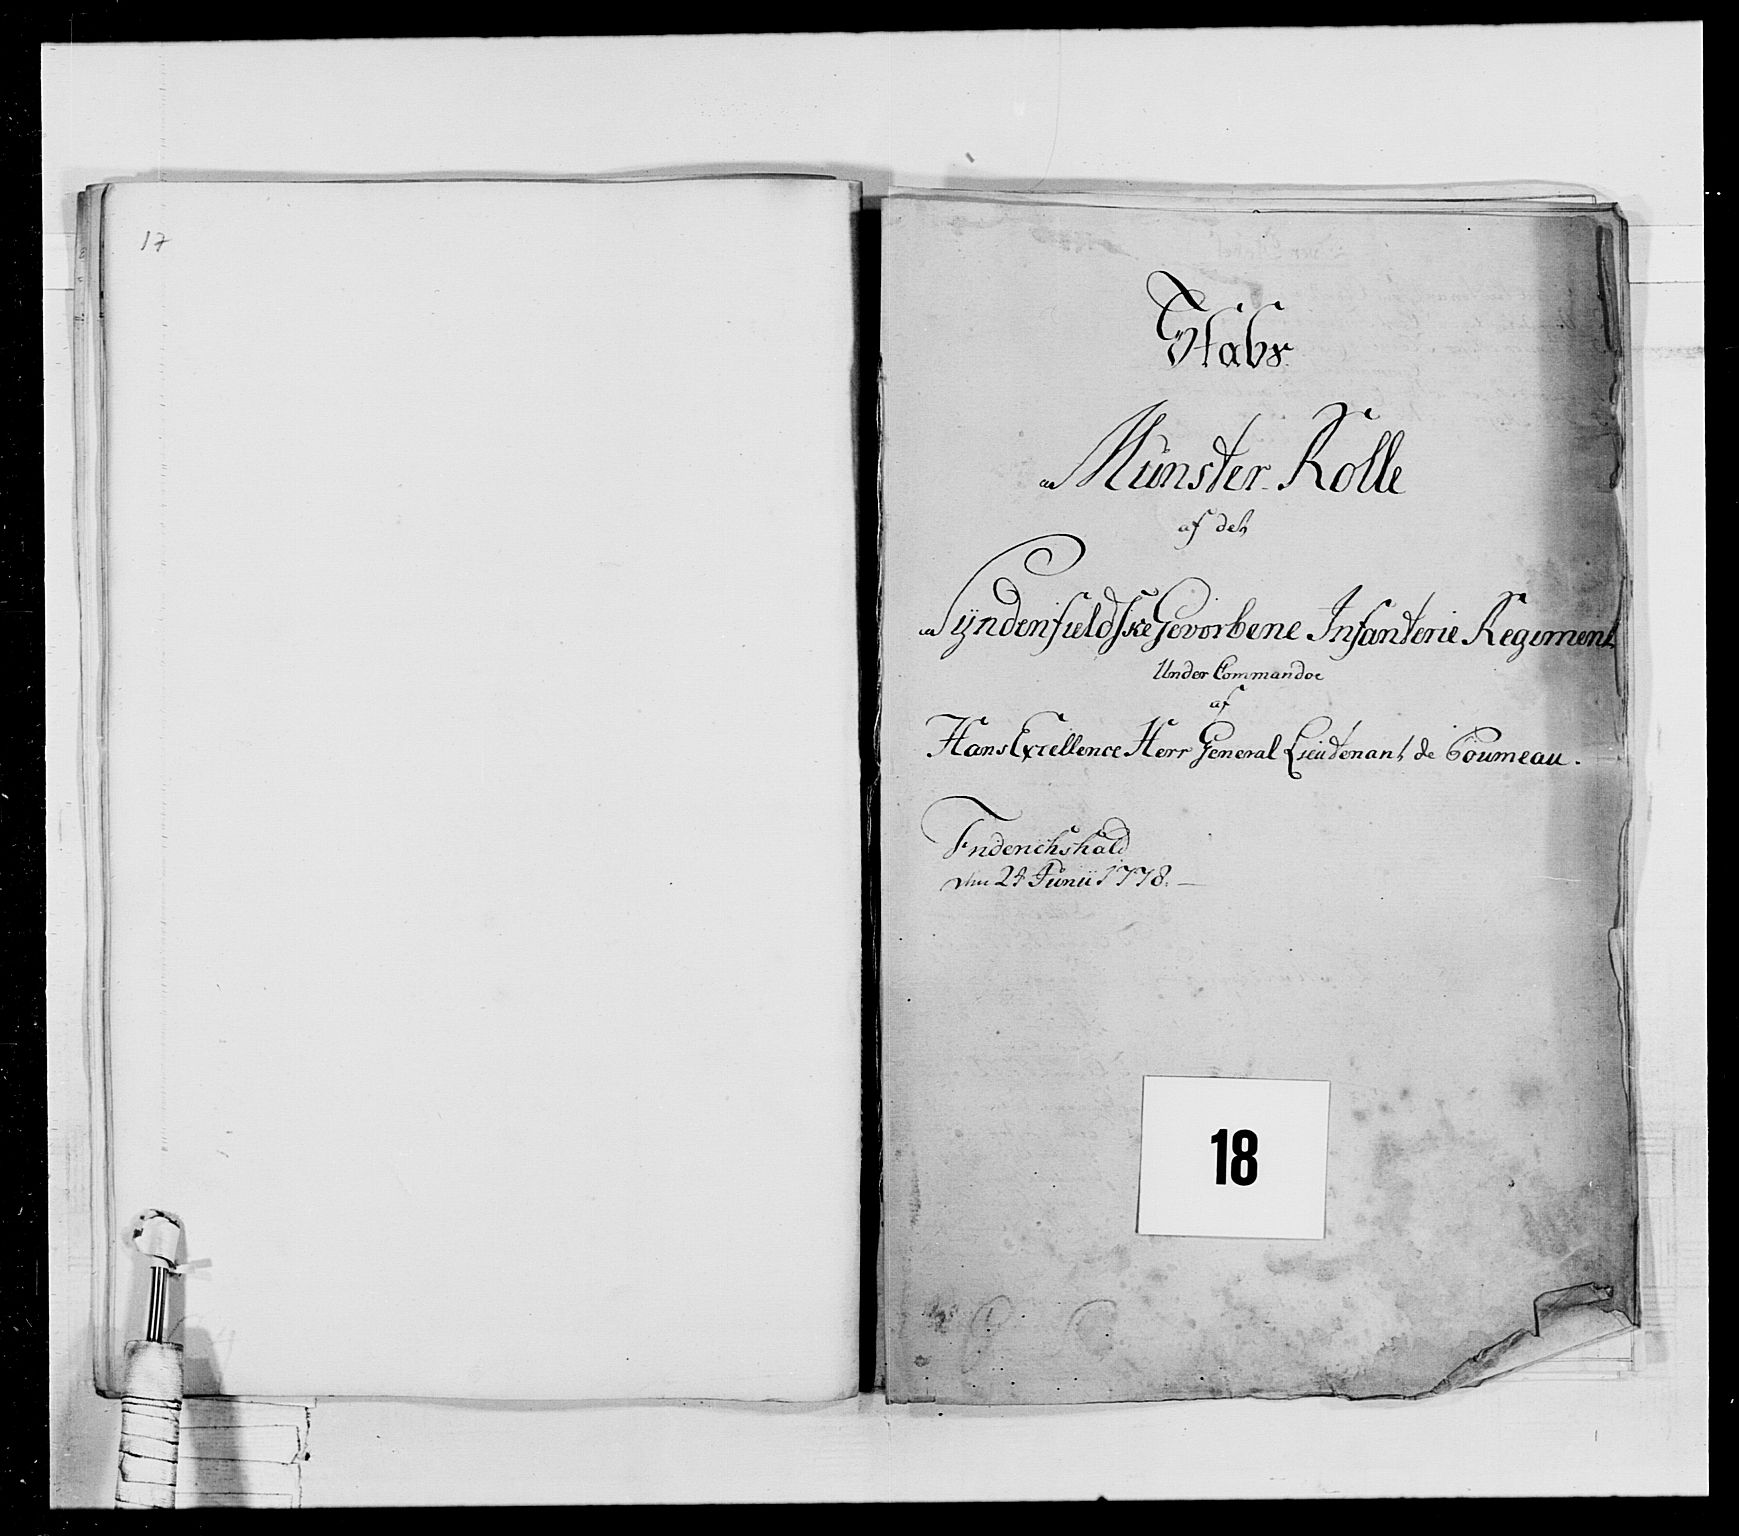 17
Stabs
Munster-Rolle
af det
Syndenfieldske Gevorbene Infanterie Regiment
Under Commandoe
af
Hans Excellence Herr General Lieutenant de Coumeau.
Friderichshald
den 24 Junii 1778.
18